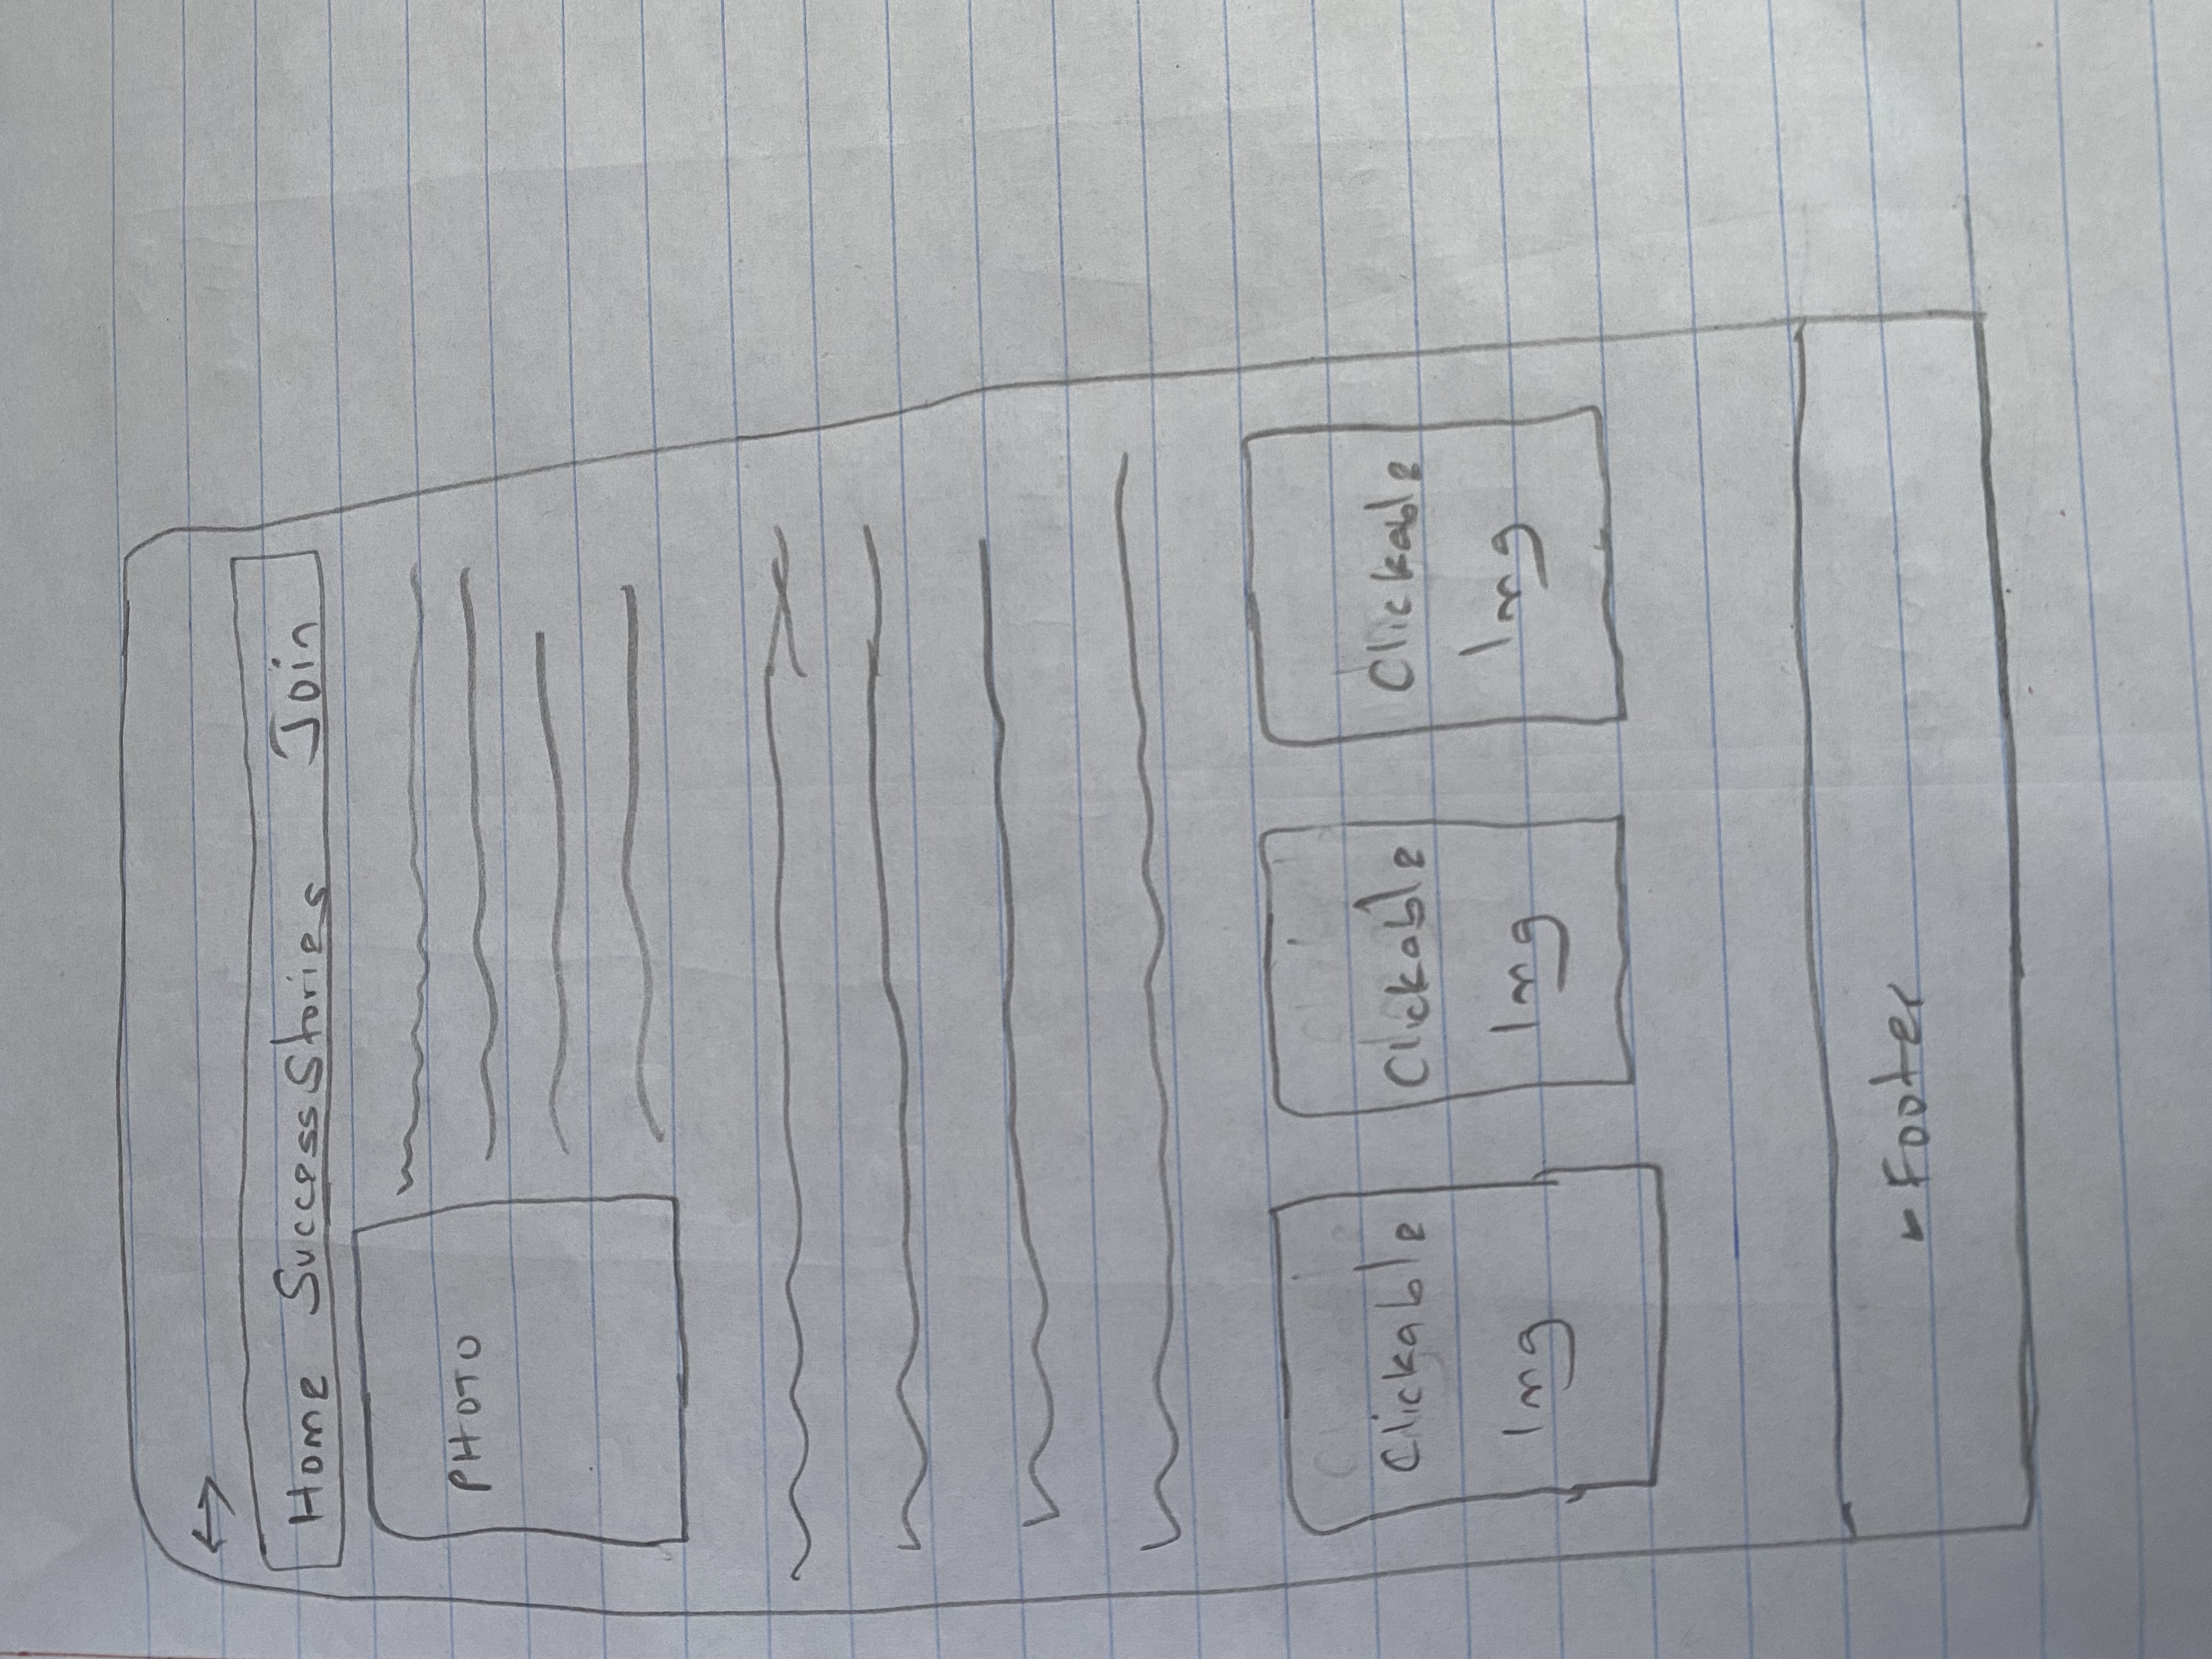 Home Success Stories Join
PHOTO
Clickable Clickable Clickable
Img Img Img
Footer